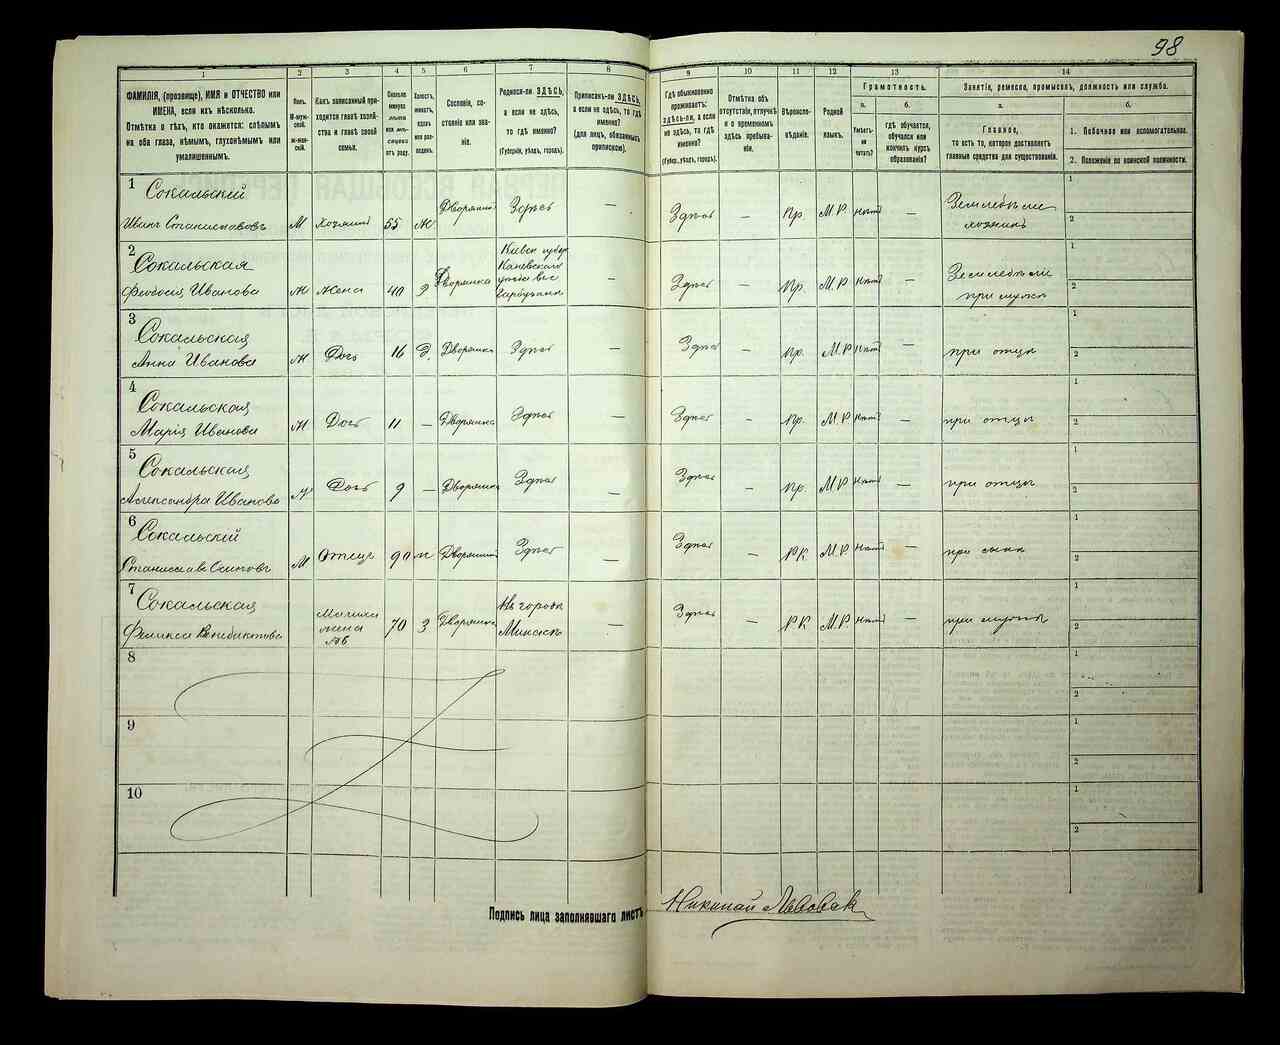 98
1
2
3
4
5
6
7
8
9
10
11
12
13
14
ФАМИЛІЯ, (прозвище), ИМЯ и ОТЧЕСТВО или
ИМЕНА, если ихъ нѣсколько.
Отмѣтка о тѣхъ, кто окажется: слѣпымъ
на оба глаза, нѣмымъ, глухонѣмымъ или
умалишеннымъ.
Полъ.
М-мужской.
Ж-женскій.
Какъ записанный при-
ходится главѣ хозяй-
ства и главѣ своей
семьи.
Сколько
минуло
лѣтъ
или мѣ-
сяцевъ
отъ роду.
Холостъ,
женатъ,
вдовъ
или раз-
веденъ.
Сословіе, со-
стояніе или зва-
ніе.
Родился-ли ЗДѢСЬ,
а если не здѣсь,
то гдѣ именно?
(Губернія, уѣздъ, городъ).
Приписанъ-ли ЗДѢСЬ,
а если не здѣсь, то гдѣ
именно?
(для лицъ, обязанныхъ
припискою).
Гдѣ обыкновенно
проживаетъ:
здѣсь-ли, а если
не здѣсь, то гдѣ
именно?
(Губерн., уѣздъ, городъ).
Отмѣтка объ
отсутствіи, отлучкѣ
и о временномъ
здѣсь пребыва-
ніи.
Вѣроиспо-
вѣданіе.
Родной
языкъ.
Грамотность.
а.
Умѣетъ-
ли
читать?
б.
гдѣ обучается,
обучался или
кончилъ курсъ
образованія?
Занятіе, ремесло, промыселъ, должность или служба.
а.
Главное,
то есть то, которое доставляетъ
главныя средства для существованія.
б.
1. Побочное или вспомогательное.
2. Положеніе по воинской повинности.
1
Сокальскій
Иванъ Станиславовъ М хозяинъ 55 ж Дворянинъ Здѣсь — Здѣсь — Пр. М.Р нѣтъ — Земледѣліе
хозяинъ
1
2
2
Сокальская
Феодосія Иванова Ж жена 40 з Дворянка Киевск губер
Каневскаго
уѣзда
— Здѣсь — Пр. М.Р нѣтъ — Земледѣліе
при мужѣ
1
2
3
Сокальская
Анна Иванова Ж Дочь 16 д. Дворянка Здѣсь — Здѣсь — Пр. М.Р нѣтъ — при отцѣ
1
2
4
Сокальская
Марія Иванова Ж Дочь 11 — Дворянка Здѣсь — Здѣсь — Пр. М.Р нѣтъ — при отцѣ
1
2
5
Сокальская
Александра Иванова Ж Дочь 9 — Дворянка Здѣсь — Здѣсь — Пр. М.Р нѣтъ — при отцѣ
1
2
6
Сокальскій
Станиславъ Осиповъ М Отецъ 90 ж Дворянинъ Здѣсь — Здѣсь — РК М.Р нѣтъ — при сынѣ
1
2
7
Сокальская
Феликсa Венедиктова Мачиха
жена
70 з Дворянка Въ городѣ
Минскѣ
— Здѣсь — РК М.Р нѣтъ — при мужѣ
1
2
8
1
2
9
1
2
10
1
2
Подпись лица заполнявшаго листъ Николай Львовак